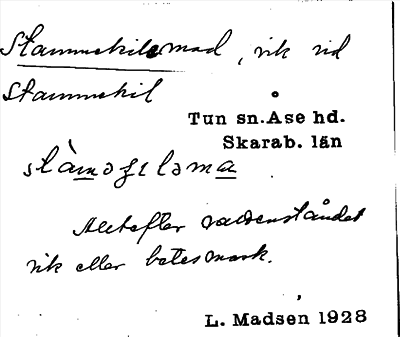 Stammekilsmad, vik vid
Stammekil
Tun sn. Åse hd.
Skarab. län
Allt efter vattenståndet
vik eller betesmark.
L. Madsen 1928